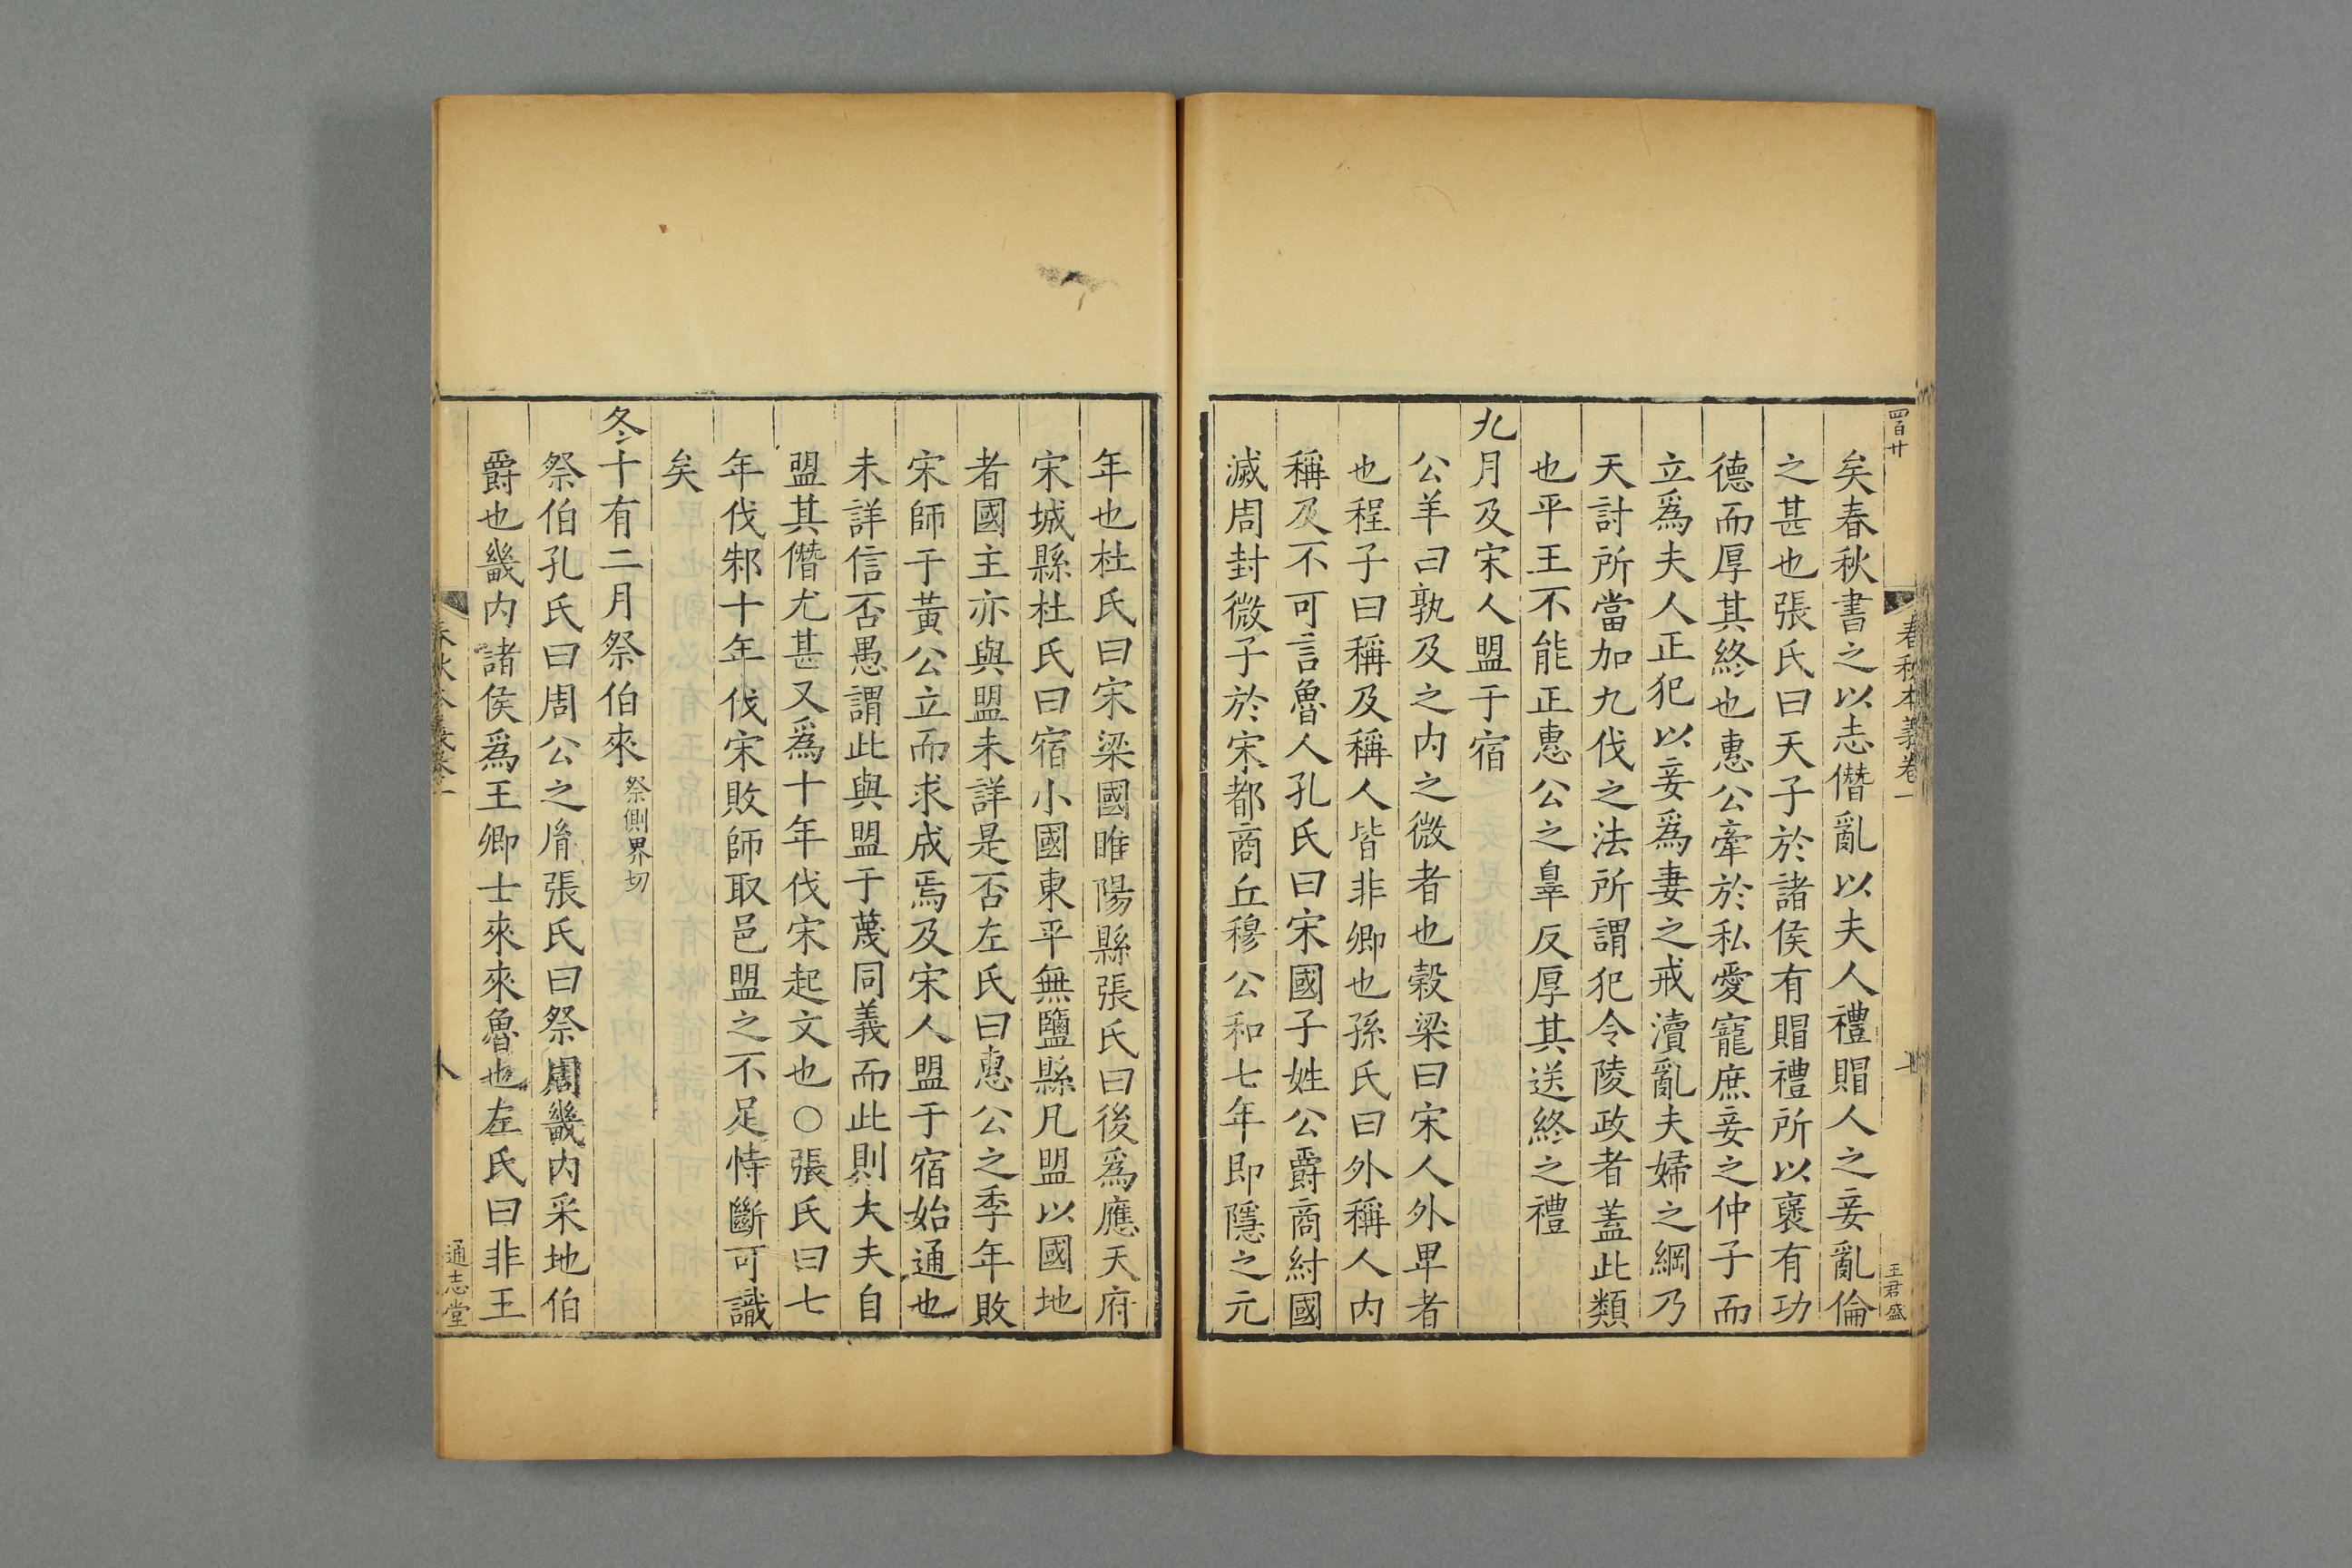 四百廿
春秋本義卷一
七
王君盛
矣春秋書之以志僭亂以夫人禮賵人之妾亂倫
之甚也張氏曰天子於諸侯有賵禮所以襃有功
德而厚其終也惠公牽於私愛寵庶妾之仲子而
立爲夫人正犯以妾爲妻之戒瀆亂夫婦之綱乃
天討所當加九伐之法所謂犯令陵政者蓋此類
也平王不能正惠公之辠反厚其送終之禮
九月及宋人盟于宿
公羊曰孰及之内之微者也榖梁曰宋人外卑者
也程子曰稱及稱人皆非卿也孫氏曰外稱人内
稱及不可言魯人孔氏曰宋國子姓公爵商紂國
滅周封微子於宋都商丘穆公和七年即隱之元
年也杜氏曰宋梁國睢陽縣張氏曰後爲應天府
宋城縣杜氏曰宿小國東平無鹽縣凡盟以國地
者國主亦與盟未詳是否左氏曰惠公之季年敗
宋師于黃公立而求成焉及宋人盟于宿始通也
未詳信否愚謂此與盟于蔑同義而此則大夫自
盟其僭尤甚又爲十年伐宋起文也○張氏曰七
年伐邾十年伐宋敗師取邑盟之不足恃斷可識
矣
冬十有二月祭伯來祭側界切
祭伯孔氏曰周公之胤張氏曰祭周畿内采地伯
爵也畿内諸侯爲王卿士來來魯也左氏曰非王
春秋本義卷一
八
通志堂